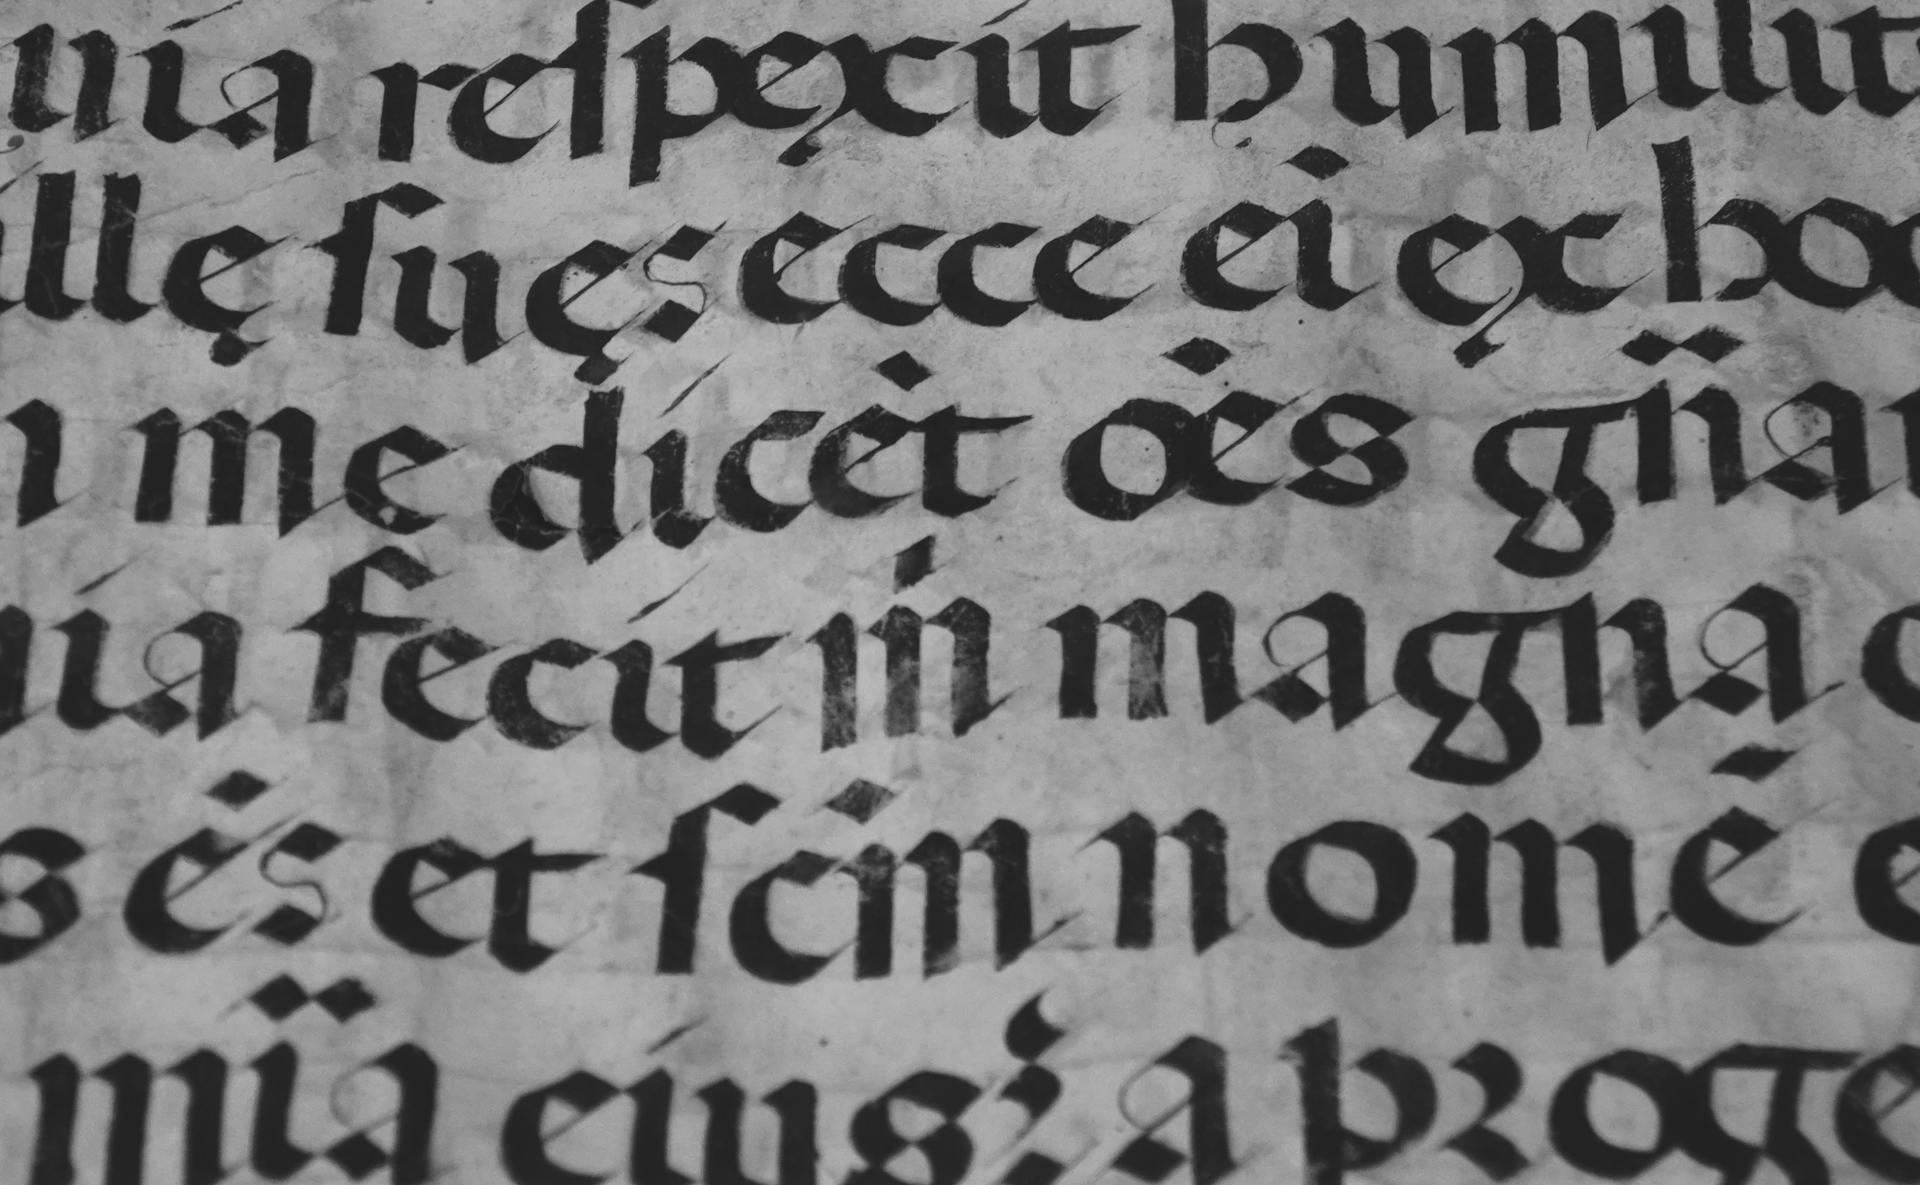 uia reſpexit humilit
illę ſuę: ecce ei ex hoc
m me dicėt oės gn̈a
uia fecit m̍ magna
s ė: et ſcṁ nomē e
mïa eius; a proge